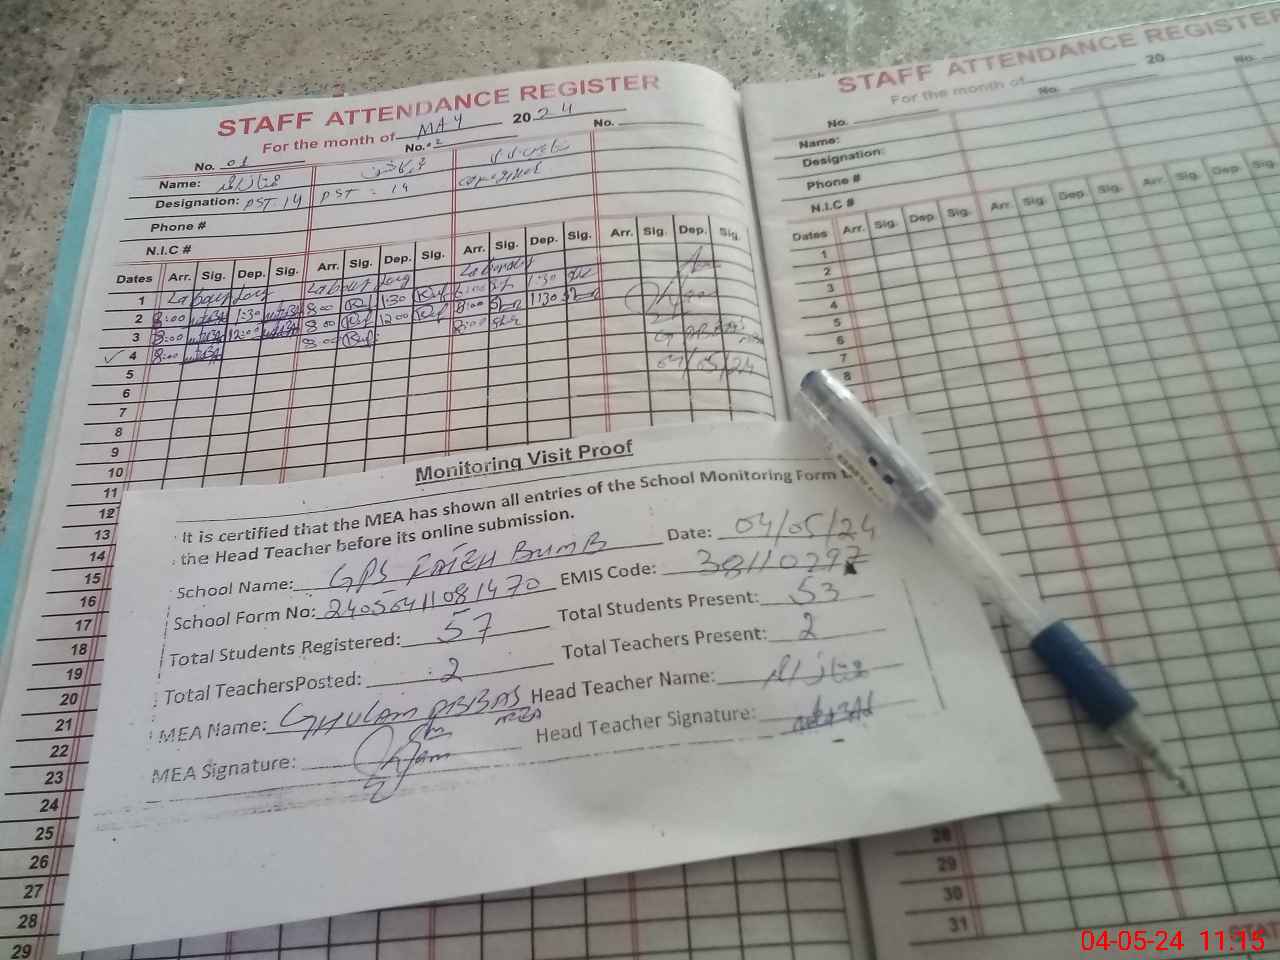 STAFF ATTENDANCE REGISTER
For the month of MAY 2024
No. 01 No. 02 No.
Name: ممتاز احمد
Designation: PST-14 PST : 14
Phone #
N.I.C #
Dates Arr. Sig. Dep. Sig. Arr. Sig. Dep. Sig. Arr. Sig. Dep. Sig. Arr. Sig. Dep. Sig.
1 Labour Day Labour Day Labour Day
2 8:00 1:30 8:00 1:30 8:00 1:30
3 8:00 12:00 8:00 12:00 8:00 11:30
4 8:00 8:00 8:00
04/05/24
5
6
7
8
9
10
11
12
13
14
15
16
17
18
19
20
21
22
23
24
25
26
27
28
29
Monitoring Visit Proof
It is certified that the MEA has shown all entries of the School Monitoring Form
the Head Teacher before its online submission.
School Name: GPS FATEH BUMB Date: 04/05/24
School Form No: 24050411081470 EMIS Code: 38110297
Total Students Registered: 57 Total Students Present: 53
Total TeachersPosted: 2 Total Teachers Present: 2
MEA Name: GHULAM ABBAS MEA Head Teacher Name: ممتاز احمد
MEA Signature: Head Teacher Signature:
STAFF ATTENDANCE REGISTER
For the month of 20
No. No. No.
Name:
Designation:
Phone #
N.I.C #
Dates Arr. Sig. Dep. Sig. Arr. Sig. Dep. Sig.
1
2
3
4
5
6
7
8
28
29
30
31
04-05-24 11:15